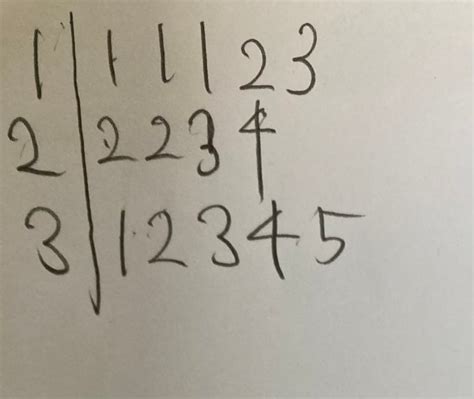 1 | 1 1 1 2 3
2 | 2 2 3 4
3 | 1 2 3 4 5